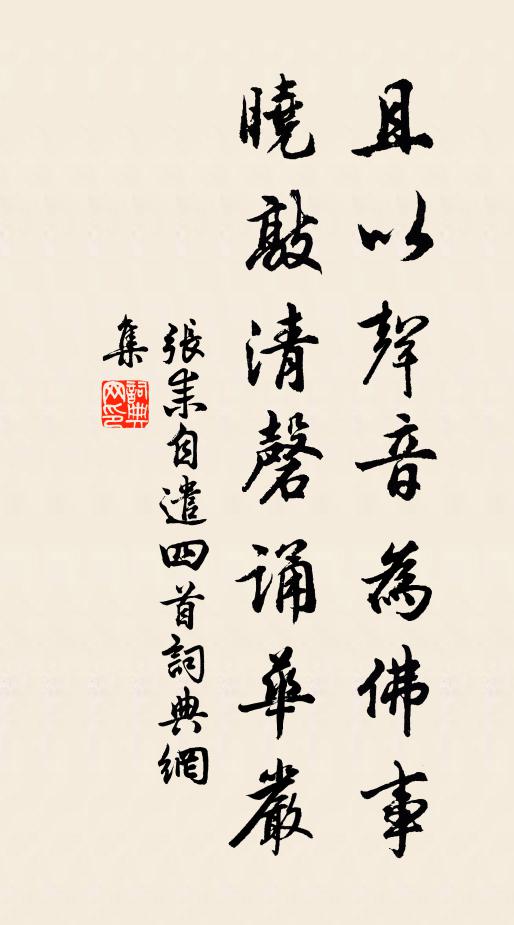 且以聲音為佛事
曉敲清磬誦華嚴
張耒自遣四首詞典網
集
詞典
网印